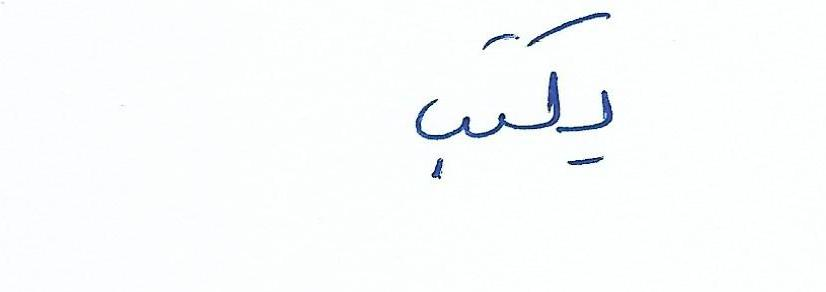 يكتب